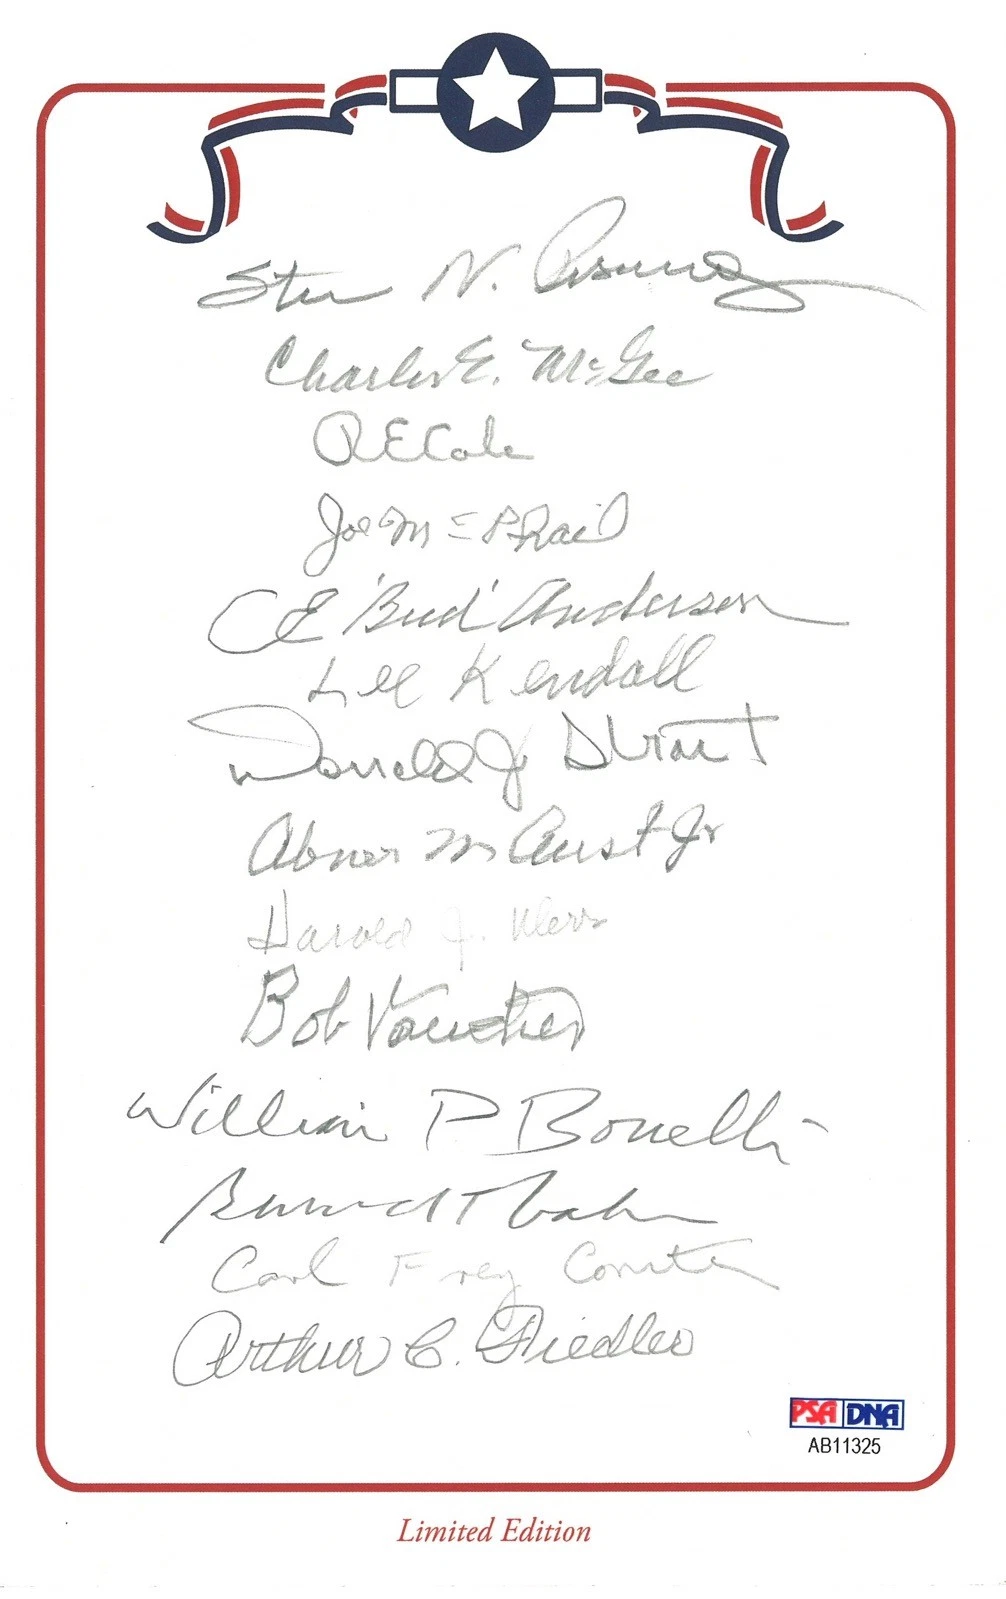 Steve N. Pisanos
Charles E. McGee
R E Cole
Joe McPhail
CE "Bud" Anderson
Lee Kendall
Donald J. Strait
Abner M Aust Jr
Harold J.
Bob Vaucher
William P Bonelli
Carl Frey Constein
Arthur C. Fiedler
PSA DNA
AB11325
Limited Edition